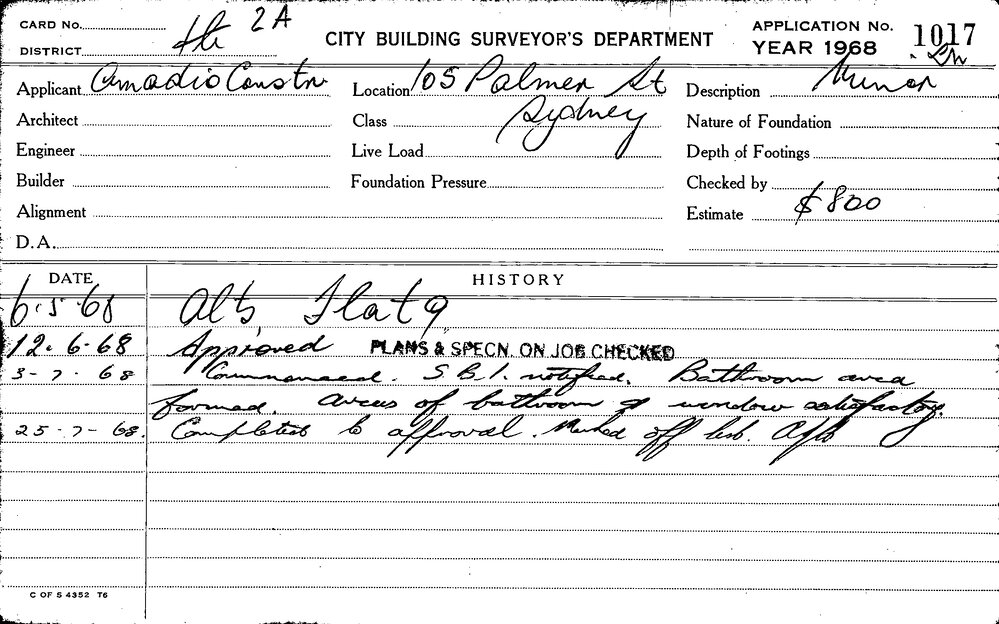 CARD No.
DISTRICT 2A
CITY BUILDING SURVEYOR'S DEPARTMENT
APPLICATION No. 1017
YEAR 1968
Applicant Amadio Constr
Location 105 Palmer St
Sydney
Description Minor
Architect
Class
Nature of Foundation
Engineer
Live Load
Depth of Footings
Builder
Foundation Pressure
Checked by
Alignment
Estimate $800
D.A.
DATE
HISTORY
6.5.68 Alts Flat 9
12.6.68 Approved PLANS & SPECN. ON JOB CHECKED
3-7-68 Commenced. S.B.I. notified. Bathroom area
formed. Areas of bathroom & window satisfactory.
25-7-68. Completed to approval. Marked off
C OF S 4352 T6